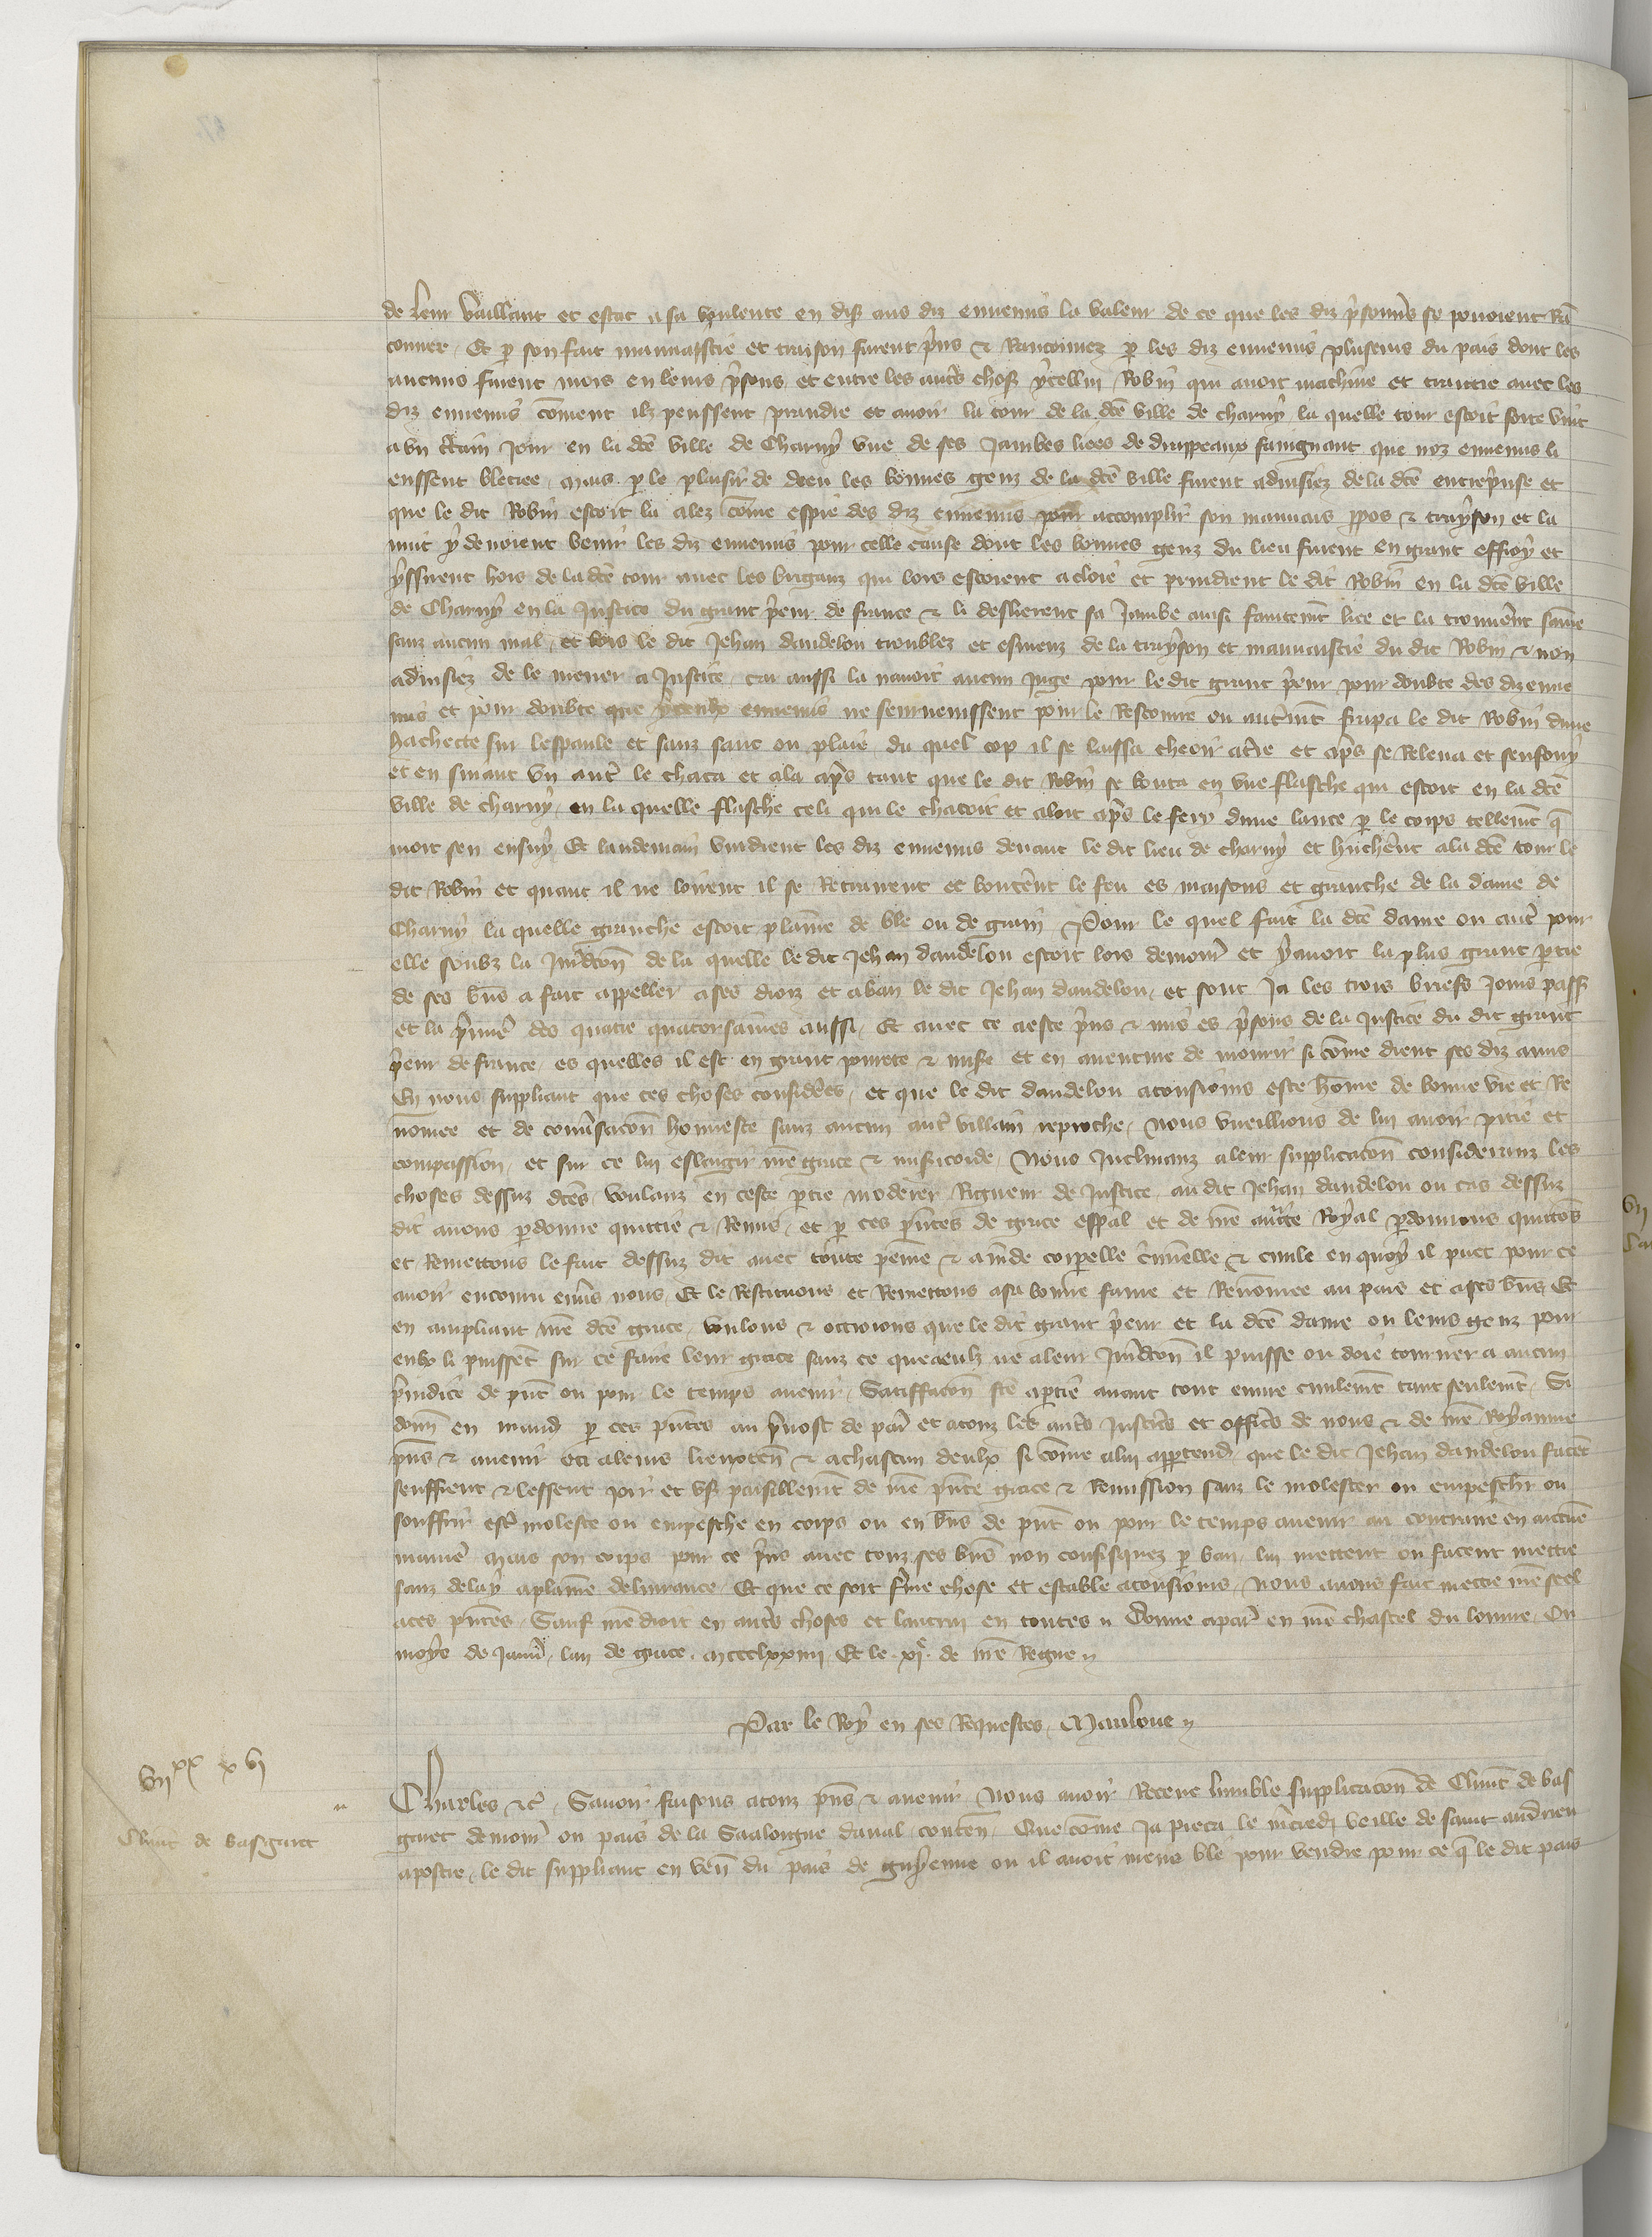 de leur vaillant et estat a sa voulente en dist aus diz ennemis la valeur de ce que les diz p̃sonn̄s se povoient Rā
conner Et ꝑ son fait mauvaistie et traison furent p̃ns & Rançonnez ꝑ les diz ennemis plusieurs du pais dont les
aucuns furent mors en leurs p̃sons et entre les aut̃s choses ycellui Robin qui avoit machine et traittie avec les
diz ennemis cōment ilz peussent prandre et avoir la tour de la dc̃e ville de charny la quelle tour estoit forte vint
a un c̃tain jour en la dc̃e ville de Charny une de ses jambes liees de drappeaux faingnant que noz ennemis li
eussent bleciee mais ꝑ le plaisir de dieu les bonnes genz de la dc̃e ville furent advisiez de la dc̃e entrep̃nse et
que le dit Robin estoit la alez cōme espie des diz ennemis pour accomplir son mauvais ꝓpos & trayson et la
nuit y devoient venir les diz ennemis pour celle cause dont les bonnes genz du lieu furent en grant effroy et
yssirent hors de la dc̃e tour avec les briganz qui lors estoient et prindrent le dit Robin en la dc̃e ville
de Charny en la Justice du grant p̃eur de france & li deslierent sa Jambe ainsi faintem̃t liee et la trouvẽnt sainē
sanz aucun mal et lors le dit Jehan dandelou troublez et esmeuz de la trayson et mauvaistie du dit Robin & non
advisiez de le mener a Justice car aussi la navoit aucun juge pour le dit grant p̃eur pour doubte des diz enne
mis et pour doubte que yceulx ennemis ne seurvenissent pour le Rescourre ou autrem̃t frapa le dit Robin dune
hachecte sur lespaule et sanz sanc ou plaie du quel cop il se laissa cheoir a t̃re et ap̃s se Releva et senfouy
et en suiant un aut̃ le chaça et ala ap̃s tant que le dit Robin se bouta en une flasche qui estoit en la dc̃e
ville de charny en la quelle flasche celi qui le chaçoit et aloit ap̃s le fery dune lance ꝑ le corps tellem̃t q̃
mort sen ensuy Et landemain vindrent les diz ennemis devant le dit lieu de charny et huchẽnt a la dc̃e tour le
dit Robin et quant il ne loirent il se Retrairent et boutẽnt le feu es maisons et granche de la dame de
Charny la quelle granche estoit plainē de ble ou de grain Pour le quel fait la dc̃e dame ou aut̃ pour
elle soubz la Jur̃dcõn de la quelle le dit Jehan dandelou estoit lors demour̃ et y avoit la plus grant ꝑtie
de ses biẽs a fait appeller a ses droiz et a ban le dit Jehan dandelou et sont Ja les trois briefs Jours pass̃
et la p̃mie᷑ des quatre quatorsaines aussi Et avec ce a este p̃ns & mis es p̃sons de la Justice du dit grant
p̃eur de france es quelles il est en grant povrete & mis̃e et en aventure de mourir si cōme dient ses diz amis
En nous suppliant que ces choses considẽes et que le dit dandelou a tousiours este hōme de bonne vie et Re
nōmee et de conv̓sacōn honneste sanz aucun aut̃ villain reproche nous vueillions de lui avoir pitie et
compassion et sur ce lui eslargir nr̃e grace & misericorde Nous Inclinanz a leur supplicacōn consideranz les
choses dessuz dc̃es voulanz en ceste ꝑtie moderer Rigueur de Justice au dit Jehan dandelou ou cas dessuz
dit avons ꝑdonne quittie & Remis et ꝑ ces p̃ntes de grace esp̃al et de nr̃e auct̃te Royal ꝑdonnons quittōs
et Remettons le fait dessuz dit avec toute peinē & am̃de corporelle c̃minelle & civile en quoy il puet pour ce
avoir encouru env̓s nous Et le Restituons et Remettons a sa bonne fame et Renōmee au pais et a ses biẽs Et
en ampliant nr̃e dc̃e grace voulons & ottroions que le dit grant p̃eur et la dc̃e dame ou leurs genz pour
eulx li puissent sur ce faire leur grace sanz ce que a eulx ne a leur Jur̃dcõn il puisse ou doie tourner a aucun
p̃iudice de p̃nt ou pour le temps avenir Satiffacōn fc̃e a ꝑtie avant tout euvre civilem̃t tant seulem̃t Si
donñ en mand̃ ꝑ ces p̃ntes au p̃vost de par̃ et a touz les aut̃s Justic̃s et offic̃s de nous & de nr̃e Royaume
p̃ns & avenir ou a leurs lieuxteñ & a chascun deulx si cōme a lui appartend̃ que le dit Jehan dandelou facẽt
seuffrent & lessent joir et us̃ paisiblem̃t de nr̃e p̃nte grace & Remission sanz le molester ou empeschr̃ ou
souffrir estr̃ moleste ou empesche en corps ou en biẽs de p̃nt ou pour le temps avenir au contraire en aucunē
manie᷑ Mais son corps pour ce p̃ns avec touz ses biẽs non confisquez ꝑ ban lui mettent ou facent mettre
sanz delay a plainē delivrance Et que ce soit f̃me chose et estable a tousiours Nous avons fait mettre nr̃e scel
a ces p̃ntes Sauf nr̃e droit en aut̃s choses et lautrui en toutes Donne a par̃ en nr̃e chastel du louvre Ou
moys de Janv̓ lan de grace mccclxxiiii Et le xjᵉ de nr̃e Regne
Par le Roy en ses Requestes Mauloue
viiˣˣ xvi
Charles &c̃ Savoir faisons a touz p̃ns & avenir Nous avoir Receue lumble supplicacōn de Clim̃t de bas
Clim̃t de basgaret
garet demour̃ ou pais de la Saalongne daval conteñ Que cōme ja pieca le m̃credi veille de saint andrieu
apostre le dit suppliant en veñ du pais de guyenne ou il avoit mene ble pour vendre pour ce q̃ le dit pais